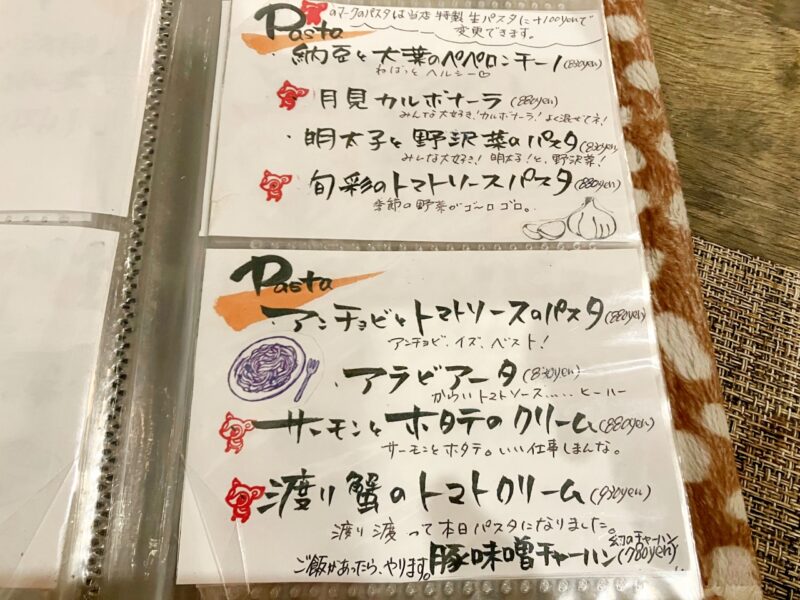 Pasta
のマークのパスタは当店特製生パスタに+100yenで
変更できます。
・納豆と大葉のペペロンチーノ(830yen)
ねばっとヘルシー♡
月見カルボナーラ(880yen)
みんな大好き!カルボナーラ!よく混ぜてネ!
・明太子と野沢菜のパスタ(830yen)
みんな大好き!明太子!と、野沢菜!
旬彩のトマトソースパスタ(880yen)
季節の野菜がゴ〜ロゴロ。
Pasta
・アンチョビとトマトソースのパスタ(880yen)
アンチョビ、イズ、ベスト!
・アラビアータ(830yen)
からいトマトソース……ヒーハー
サーモンとホタテのクリーム(880yen)
サーモンとホタテ。いい仕事しまんな。
渡り蟹のトマトクリーム(930yen)
渡り渡って本日パスタになりました。
幻のチャーハン
ご飯があったら、やります。豚味噌チャーハン(780yen)